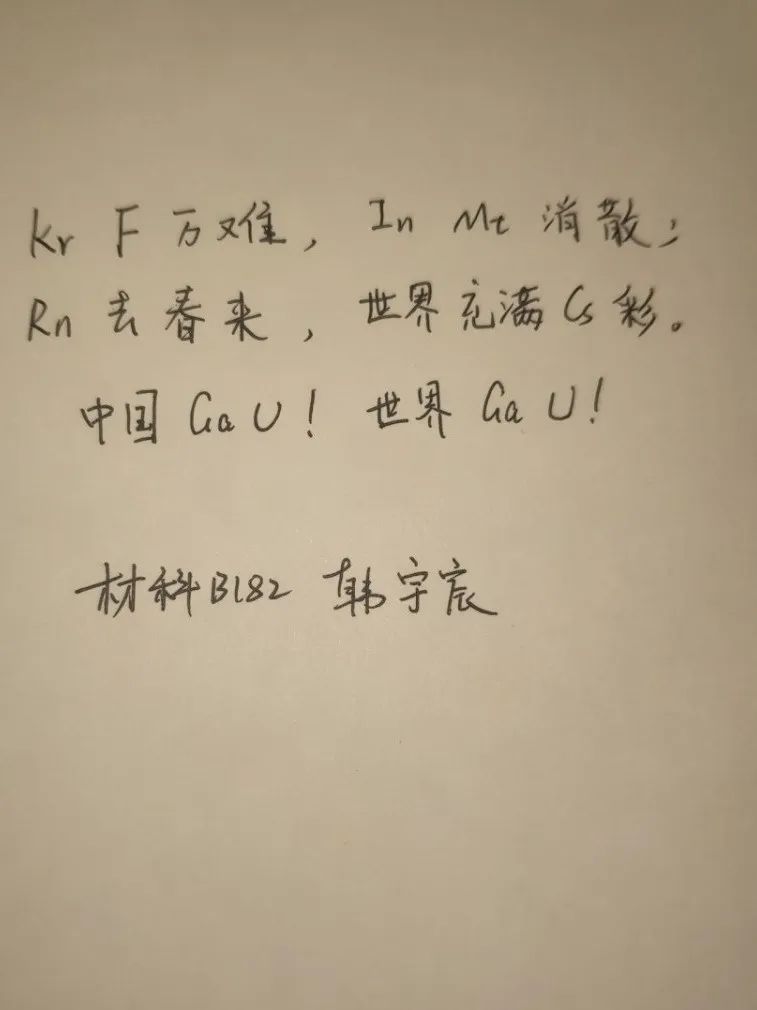 Kr F 万难，In Mt 消散；
Rn 去春来，世界充满 Cs 彩。
中国 Ga U！世界 Ga U！
材科B182 韩宇宸